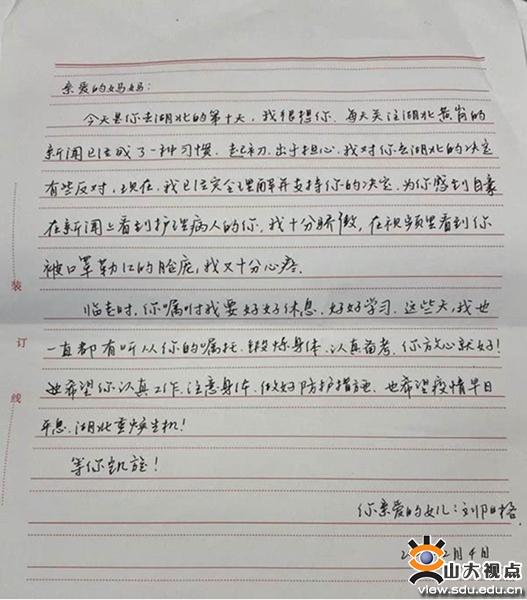 亲爱的妈妈：
今天是你去湖北的第十天，我很想你。每天关注湖北黄冈的
新闻已经成了一种习惯。起初，出于担心，我对你去湖北的决定
有些反对，现在，我已经完全理解并支持你的决定，为你感到自豪
在新闻上看到护理病人的你，我十分骄傲，在视频里看到你
被口罩勒红的脸庞，我又十分心疼。
临走时，你嘱咐我要好好休息，好好学习。这些天，我也
一直都有听从你的嘱托，锻炼身体，认真备考，你放心就好！
也希望你认真工作，注意身体，做好防护措施。也希望疫情早日
平息，湖北重焕生机！
等你凯旋！
你亲爱的女儿：刘阳格
2月4日
装
订
线
山大视点
view.sdu.edu.cn